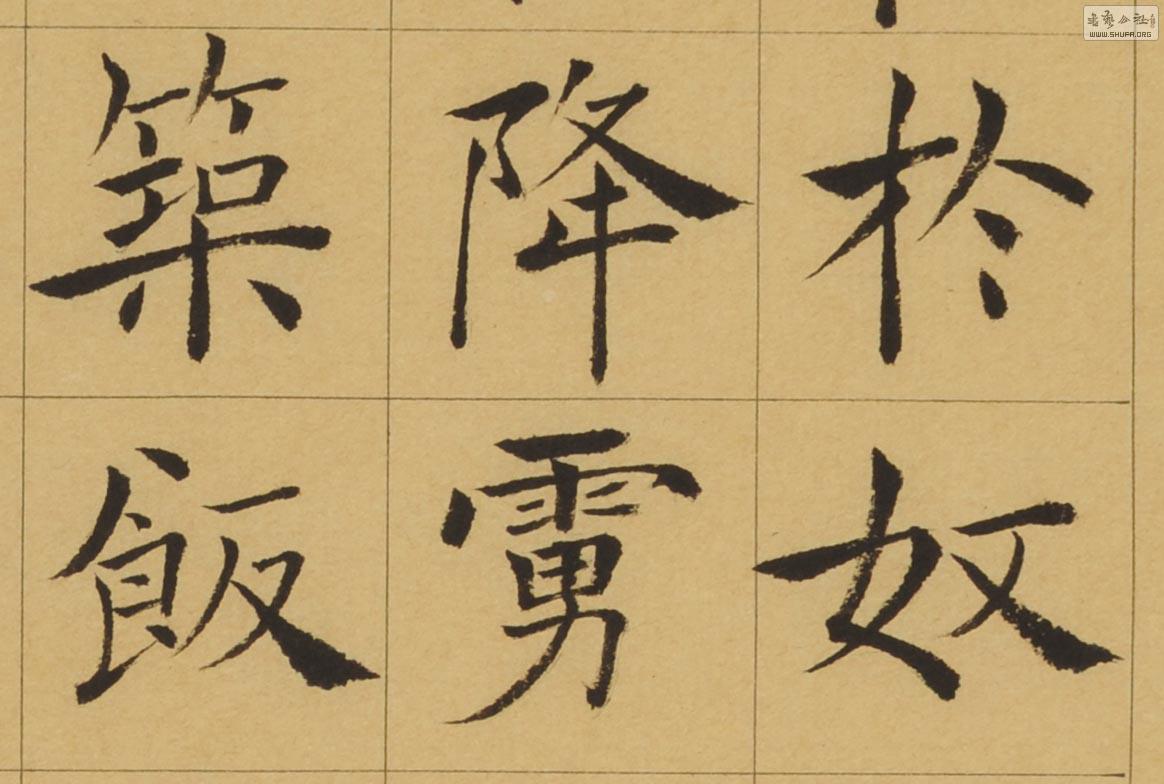 於奴
降虜
築飯
書藝公社
WWW.SHUFA.ORG